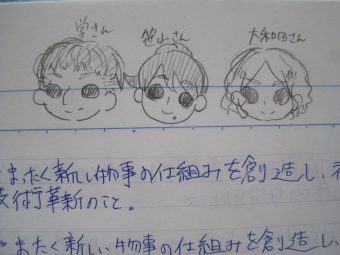 営さん 笹山さん 大和田さん
まったく新しい物事の仕組みを創造し、
技術革新のこと。
まったく新しい物事の仕組みを創造し、